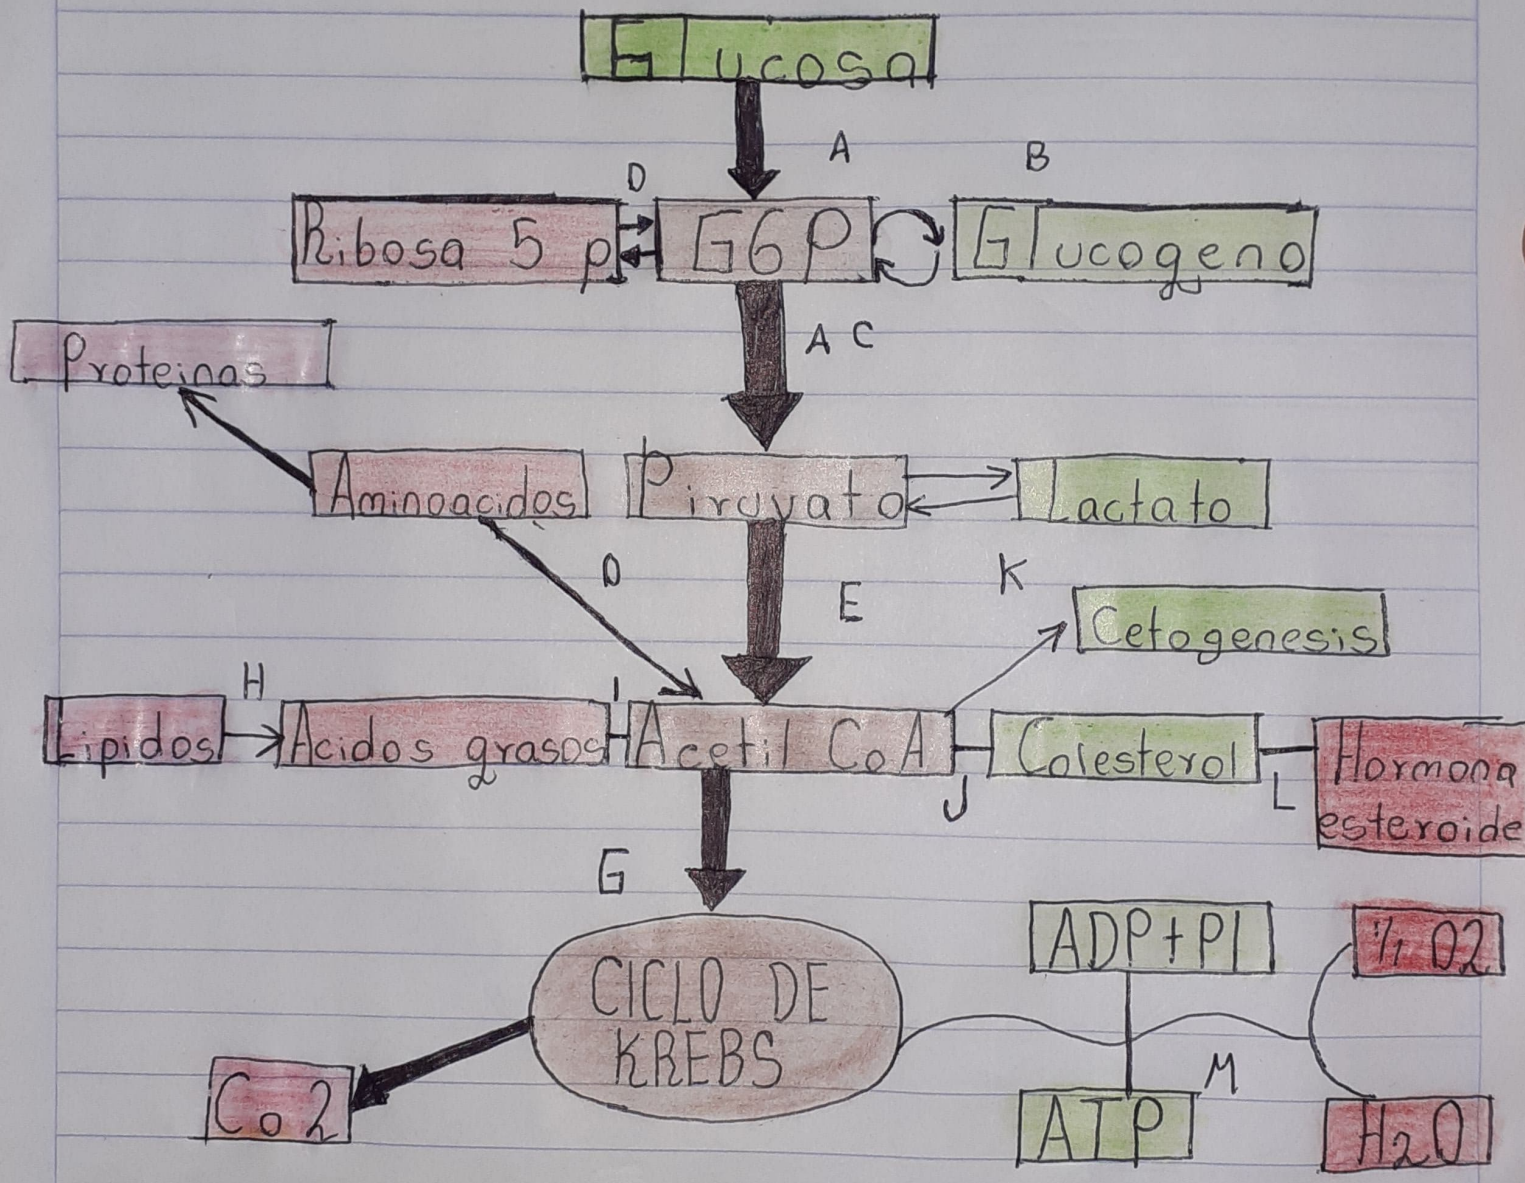 Glucosa
A
B
D
Ribosa 5 p
G6P
Glucogeno
A C
Proteinas
Aminoacidos
Piruvato
Lactato
D
E
K
Cetogenesis
H
I
Lipidos
Acidos grasos
Acetil CoA
Colesterol
Hormona
esteroide
J
L
G
CICLO DE
KREBS
ADP+PI
O2
Co2
M
ATP
H2O